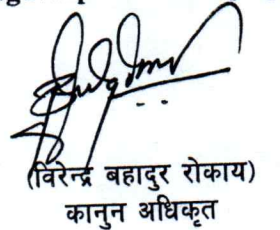 (विरेन्द्र बहादुर रोकाय)
कानुन अधिकृत